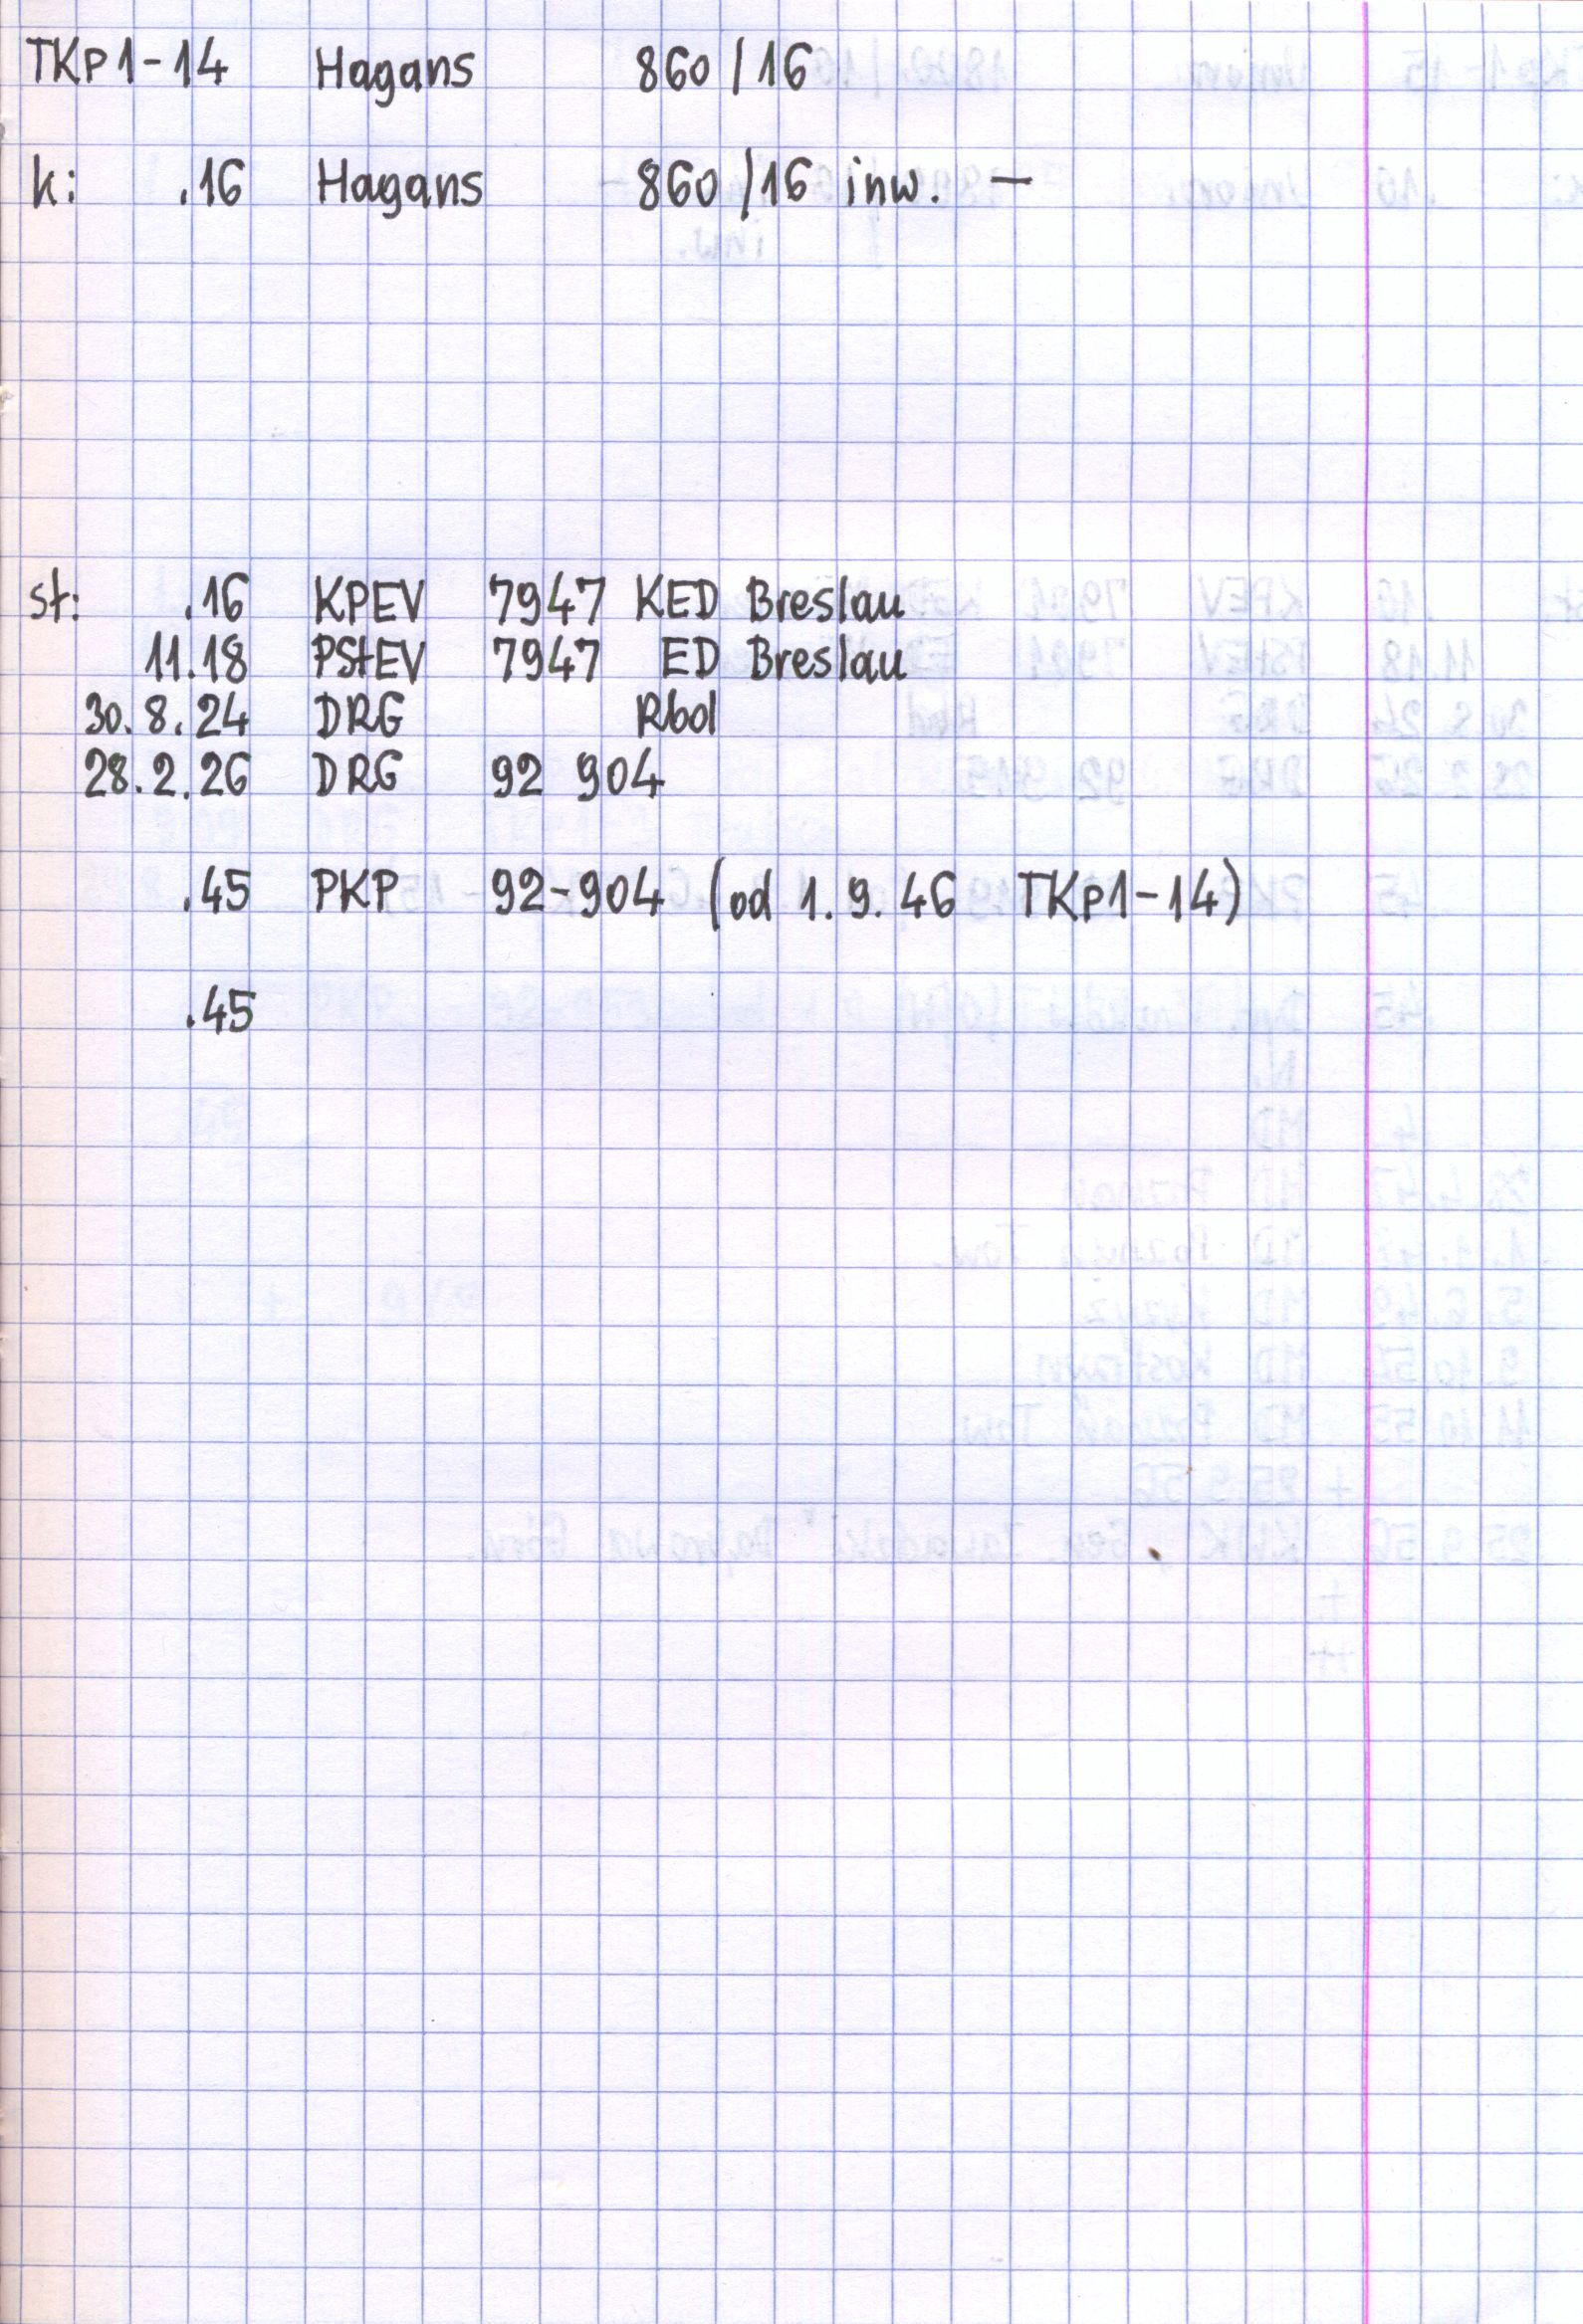 TKp1-14 Hagans 860/16
k: .16 Hagans 860/16 inw. —
st: .16 KPEV 7947 KED Breslau
11.18 PStEV 7947 ED Breslau
30.8.24 DRG Rbd
28.2.26 DRG 92 904
.45 PKP 92-904 (od 1.9.46 TKp1-14)
.45